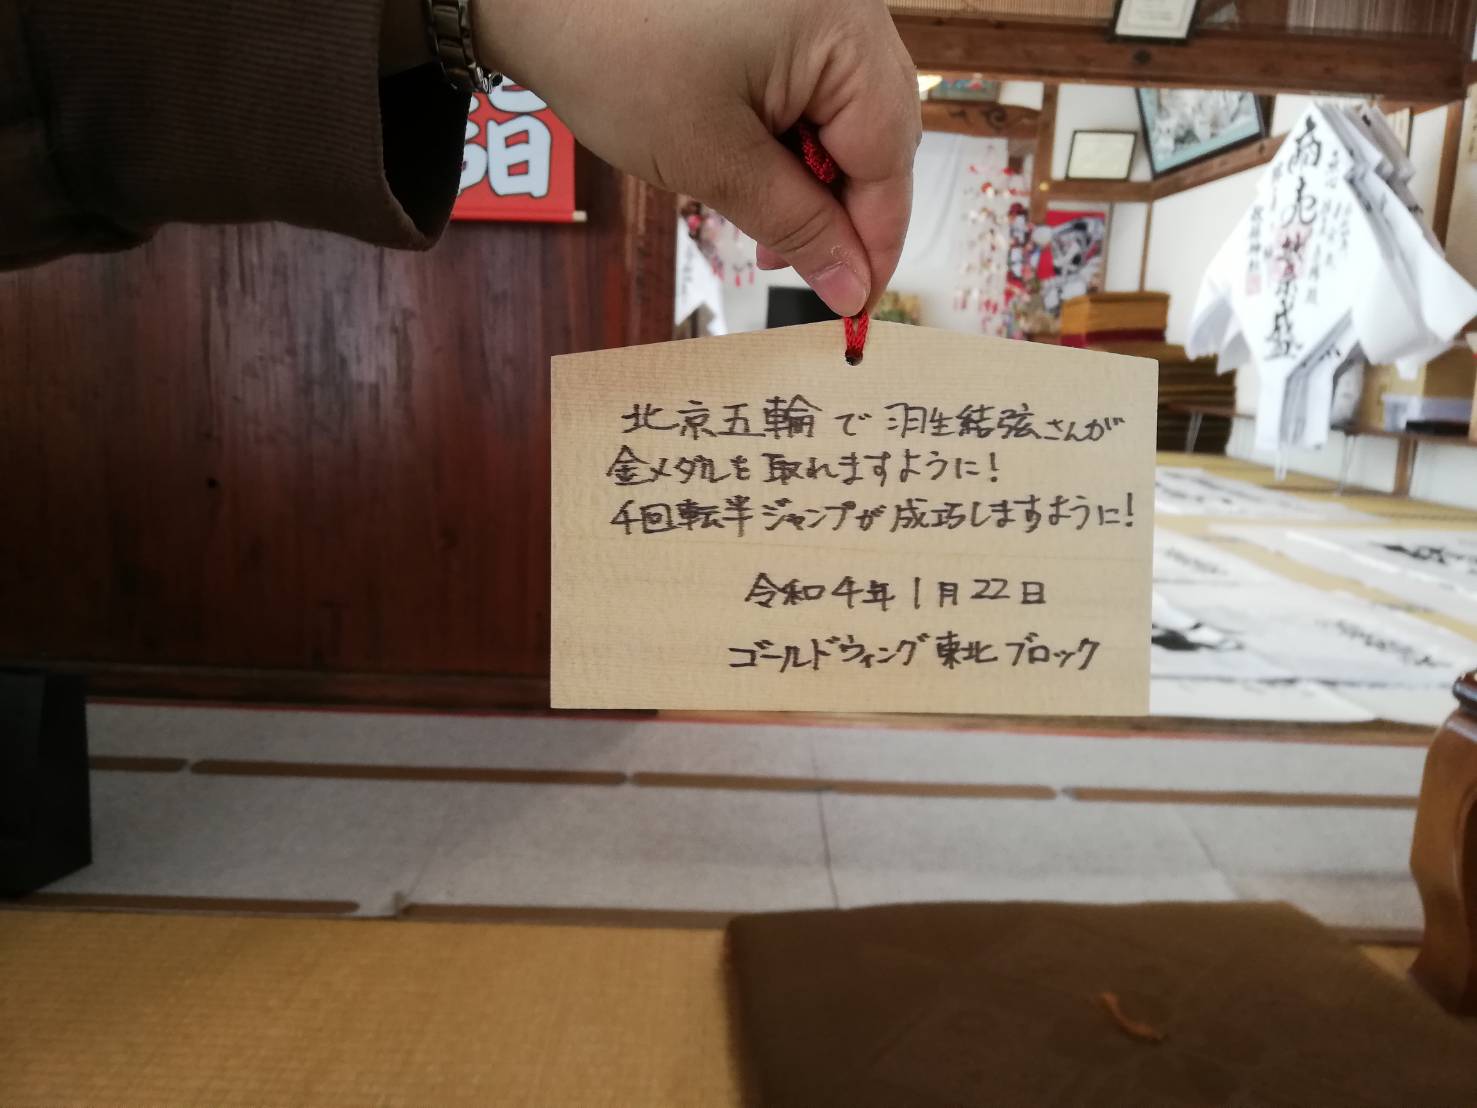 北京五輪で羽生結弦さんが
金メダルを取れますように!
4回転半ジャンプが成功しますように!
令和4年1月22日
ゴールドウィング東北ブロック
商売繁盛
詣